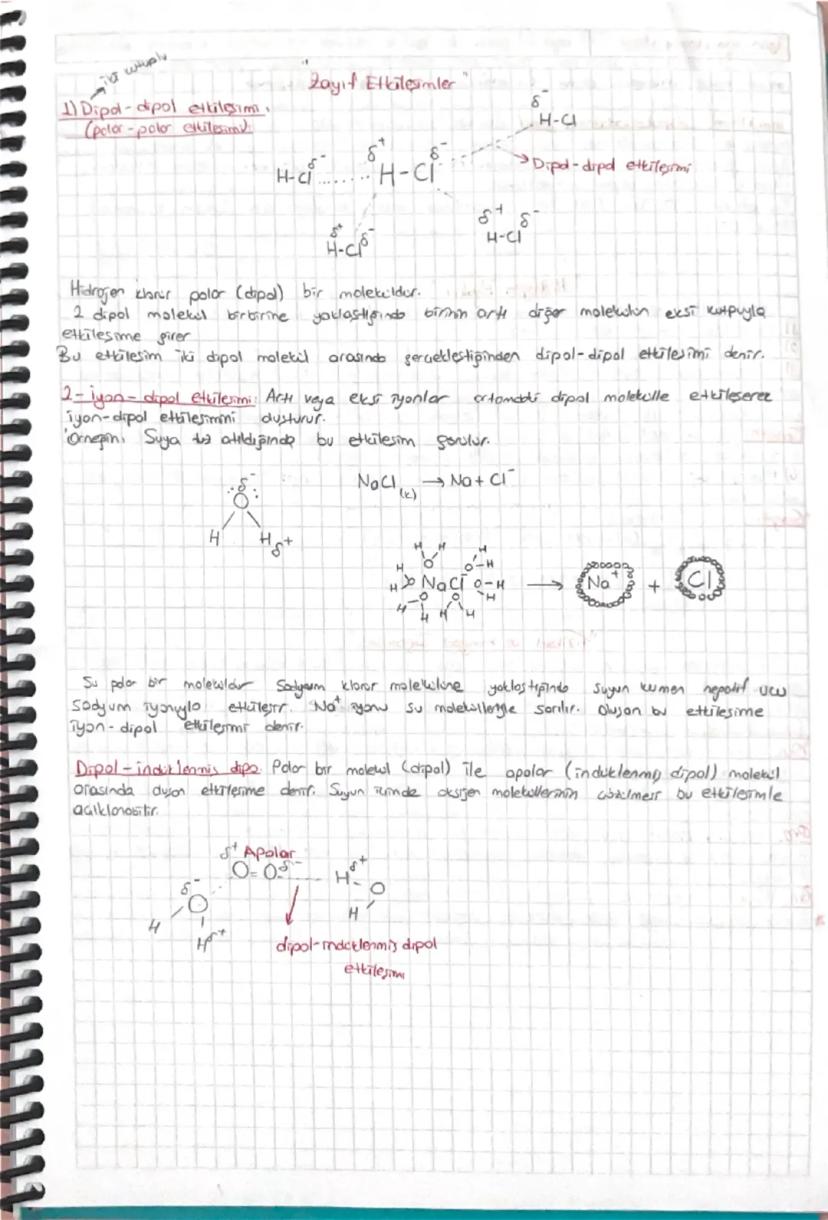 iki kutuplu
"Zayıf Etkileşimler"
1) Dipol-dipol etkileşimi.
(polar-polar etkileşimi)
δ⁻
H-Cl
δ⁺ δ⁻
H-Cl δ⁻ ....... H-Cl
Dipol-dipol etkileşimi
δ⁺ δ⁻
H-Cl
δ⁺
H-Cl δ⁻
Hidrojen klorür polar (dipol) bir moleküldür.
2 dipol molekül birbirine yaklaştığında birinin artı diğer molekülün eksi kutpuyla
etkileşime girer
Bu etkileşim iki dipol molekül arasında gerçekleştiğinden dipol-dipol etkileşimi denir.
2-iyon-dipol etkileşimi: Artı veya eksi iyonlar ortamdaki dipol molekülle etkileşerek
iyon-dipol etkileşimini oluşturur.
Örneğin; Suya tuz atıldığında bu etkileşim görülür.
δ⁻
O
H H δ⁺
NaCl(k) → Na + Cl⁻
H H
O O-H H
H O NaCl O-H
H O O H
H H H H
→ Na⁺ + Cl
Su polar bir moleküldür Sodyum klorür molekülüne yaklaştığında suyun kısmen negatif ucu
sodyum iyonuyla etkileşir. Na⁺ iyonu su molekülleriyle sarılır. Oluşan bu etkileşime
iyon-dipol etkileşimi denir.
Dipol-indüklenmiş dipo. Polar bir molekül (dipol) ile apolar (indüklenmiş dipol) molekül
arasında oluşan etkileşime denir. Suyun içinde oksijen moleküllerinin çözülmesi bu etkileşimle
açıklanabilir.
δ⁺ Apolar
O=O δ⁻ H δ⁺
δ⁻ O
O H
H
H δ⁺
dipol-indüklenmiş dipol
etkileşimi